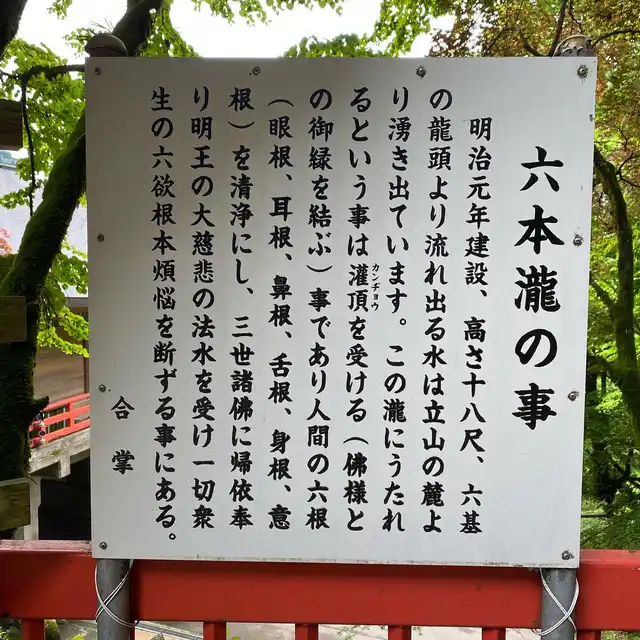 六本瀧の事
明治元年建設、高さ十八尺、六基
の龍頭より流れ出る水は立山の麓よ
り湧き出ています。この瀧にうたれ
るという事は灌頂を受ける（佛様と
カンチョウ
の御緑を結ぶ）事であり人間の六根
（眼根、耳根、鼻根、舌根、身根、意
根）を清浄にし、三世諸佛に帰依奉
り明王の大慈悲の法水を受け一切衆
生の六欲根本煩悩を断ずる事にある。
合掌